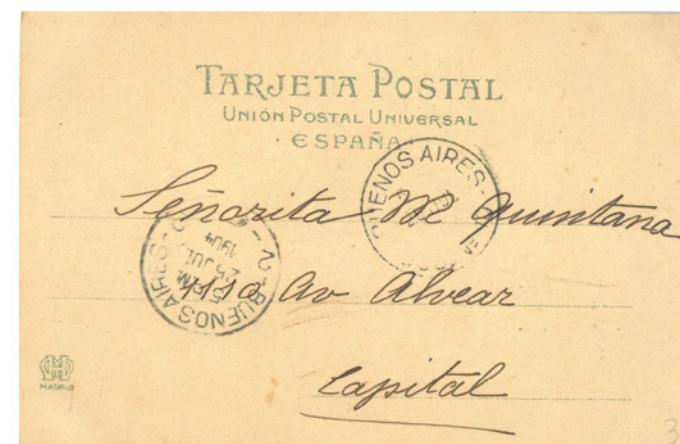 TARJETA POSTAL
UNIÓN POSTAL UNIVERSAL
ESPAÑA
BUENOS AIRES
Señorita M Quintana
BUENOS AIRES - 2
25 JUL
1904
5 PM
Av Alvear
Capital
MADRID
3